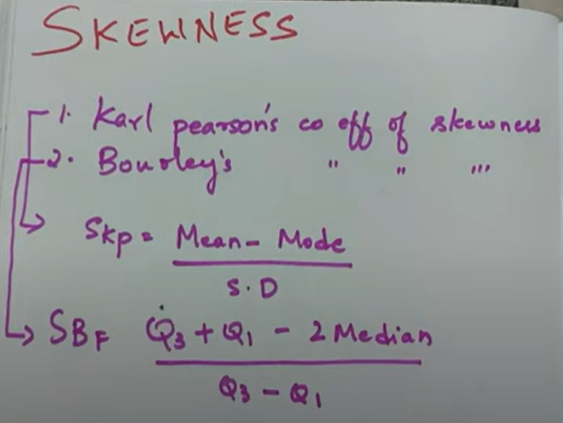 SKEWNESS
1. Karl pearson's co eff of skewness
2. Bowley's " " "'
Skp = Mean - Mode
S.D
SBF Q3 + Q1 - 2 Median
Q3 - Q1